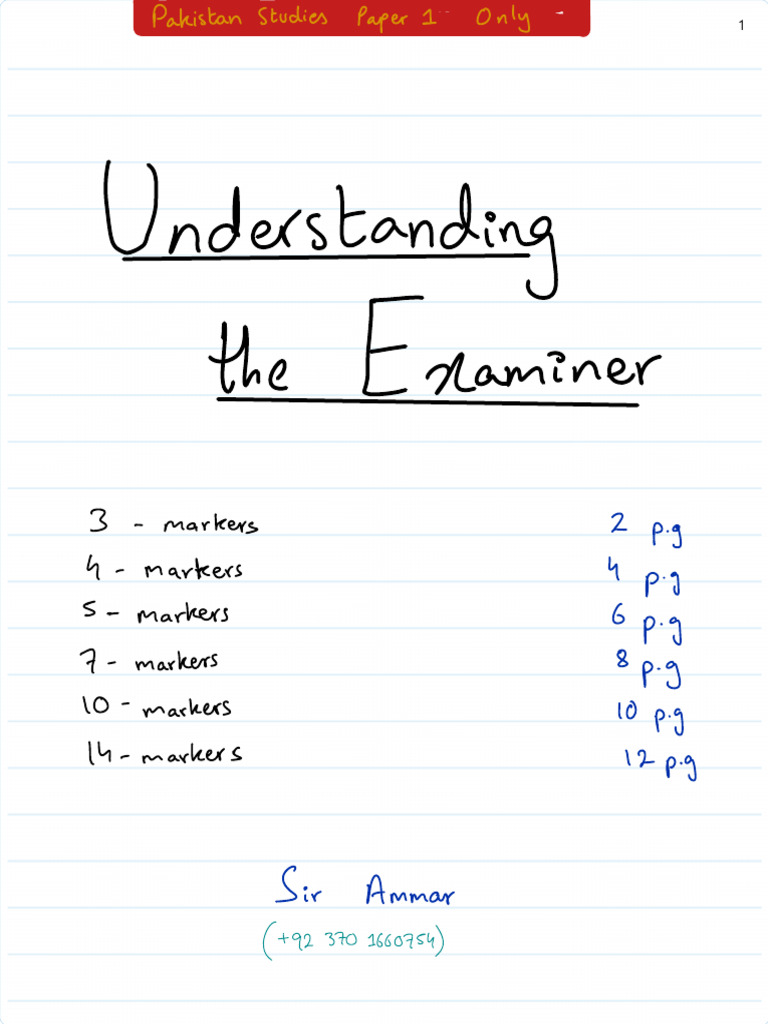 Pakistan Studies Paper 1 Only -
1
Understanding
the Examiner
3 - markers 2 p.g
4 - markers 4 p.g
5 - markers 6 p.g
7 - markers 8 p.g
10 - markers 10 p.g
14 - markers 12 p.g
Sir Ammar
(+92 370 1660754)